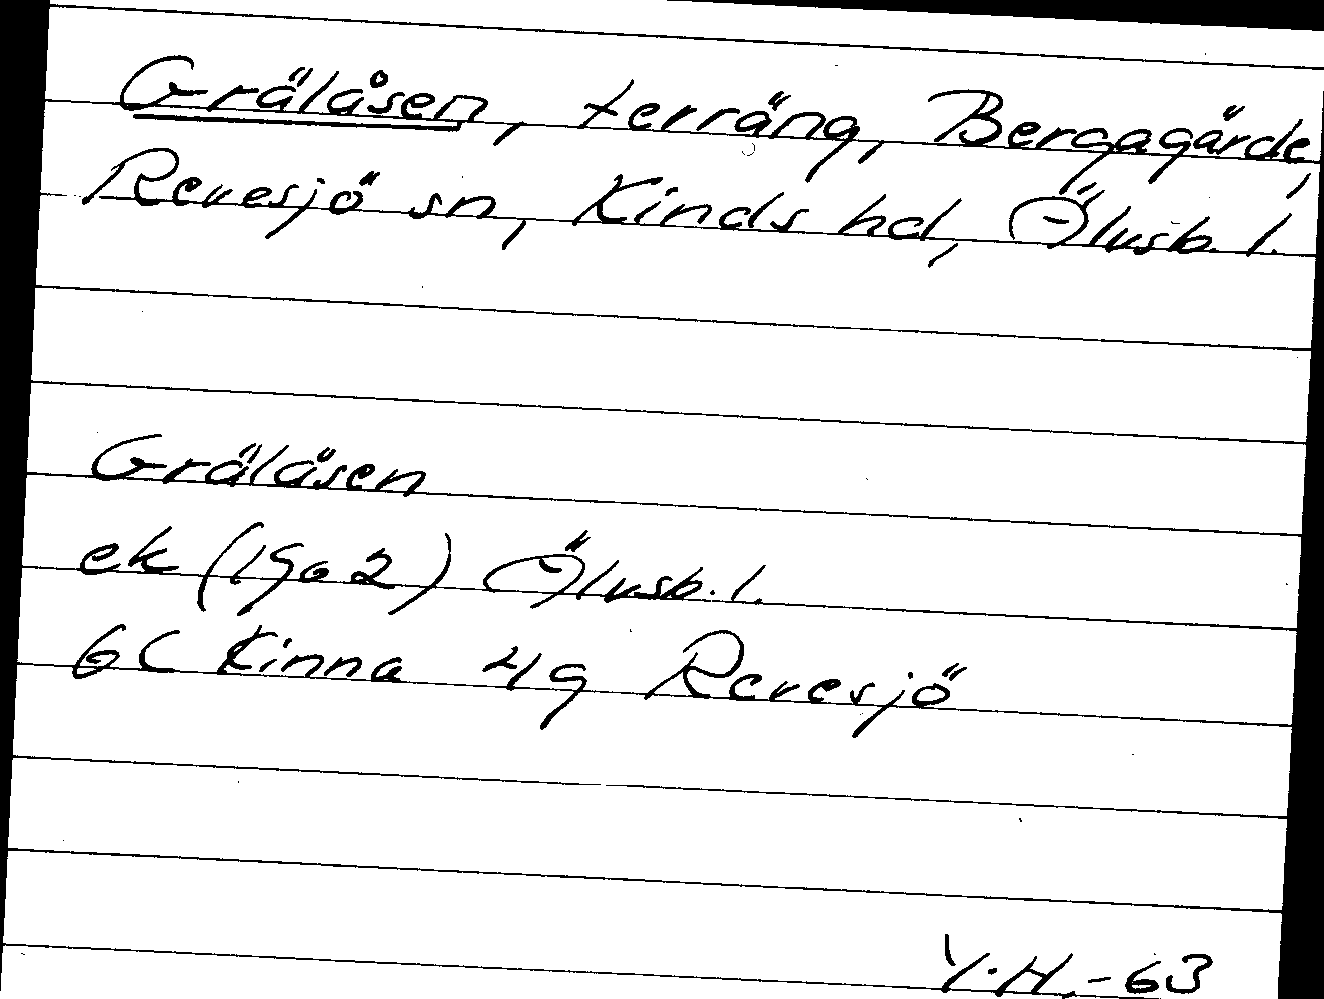 Grälåsen, terräng, Bergagärde,
Revesjö sn, Kinds hd, Älvsb. l.
Grälåsen
ek (1962) Älvsb. l.
6C Kinna 4g Revesjö
Y.H.-63